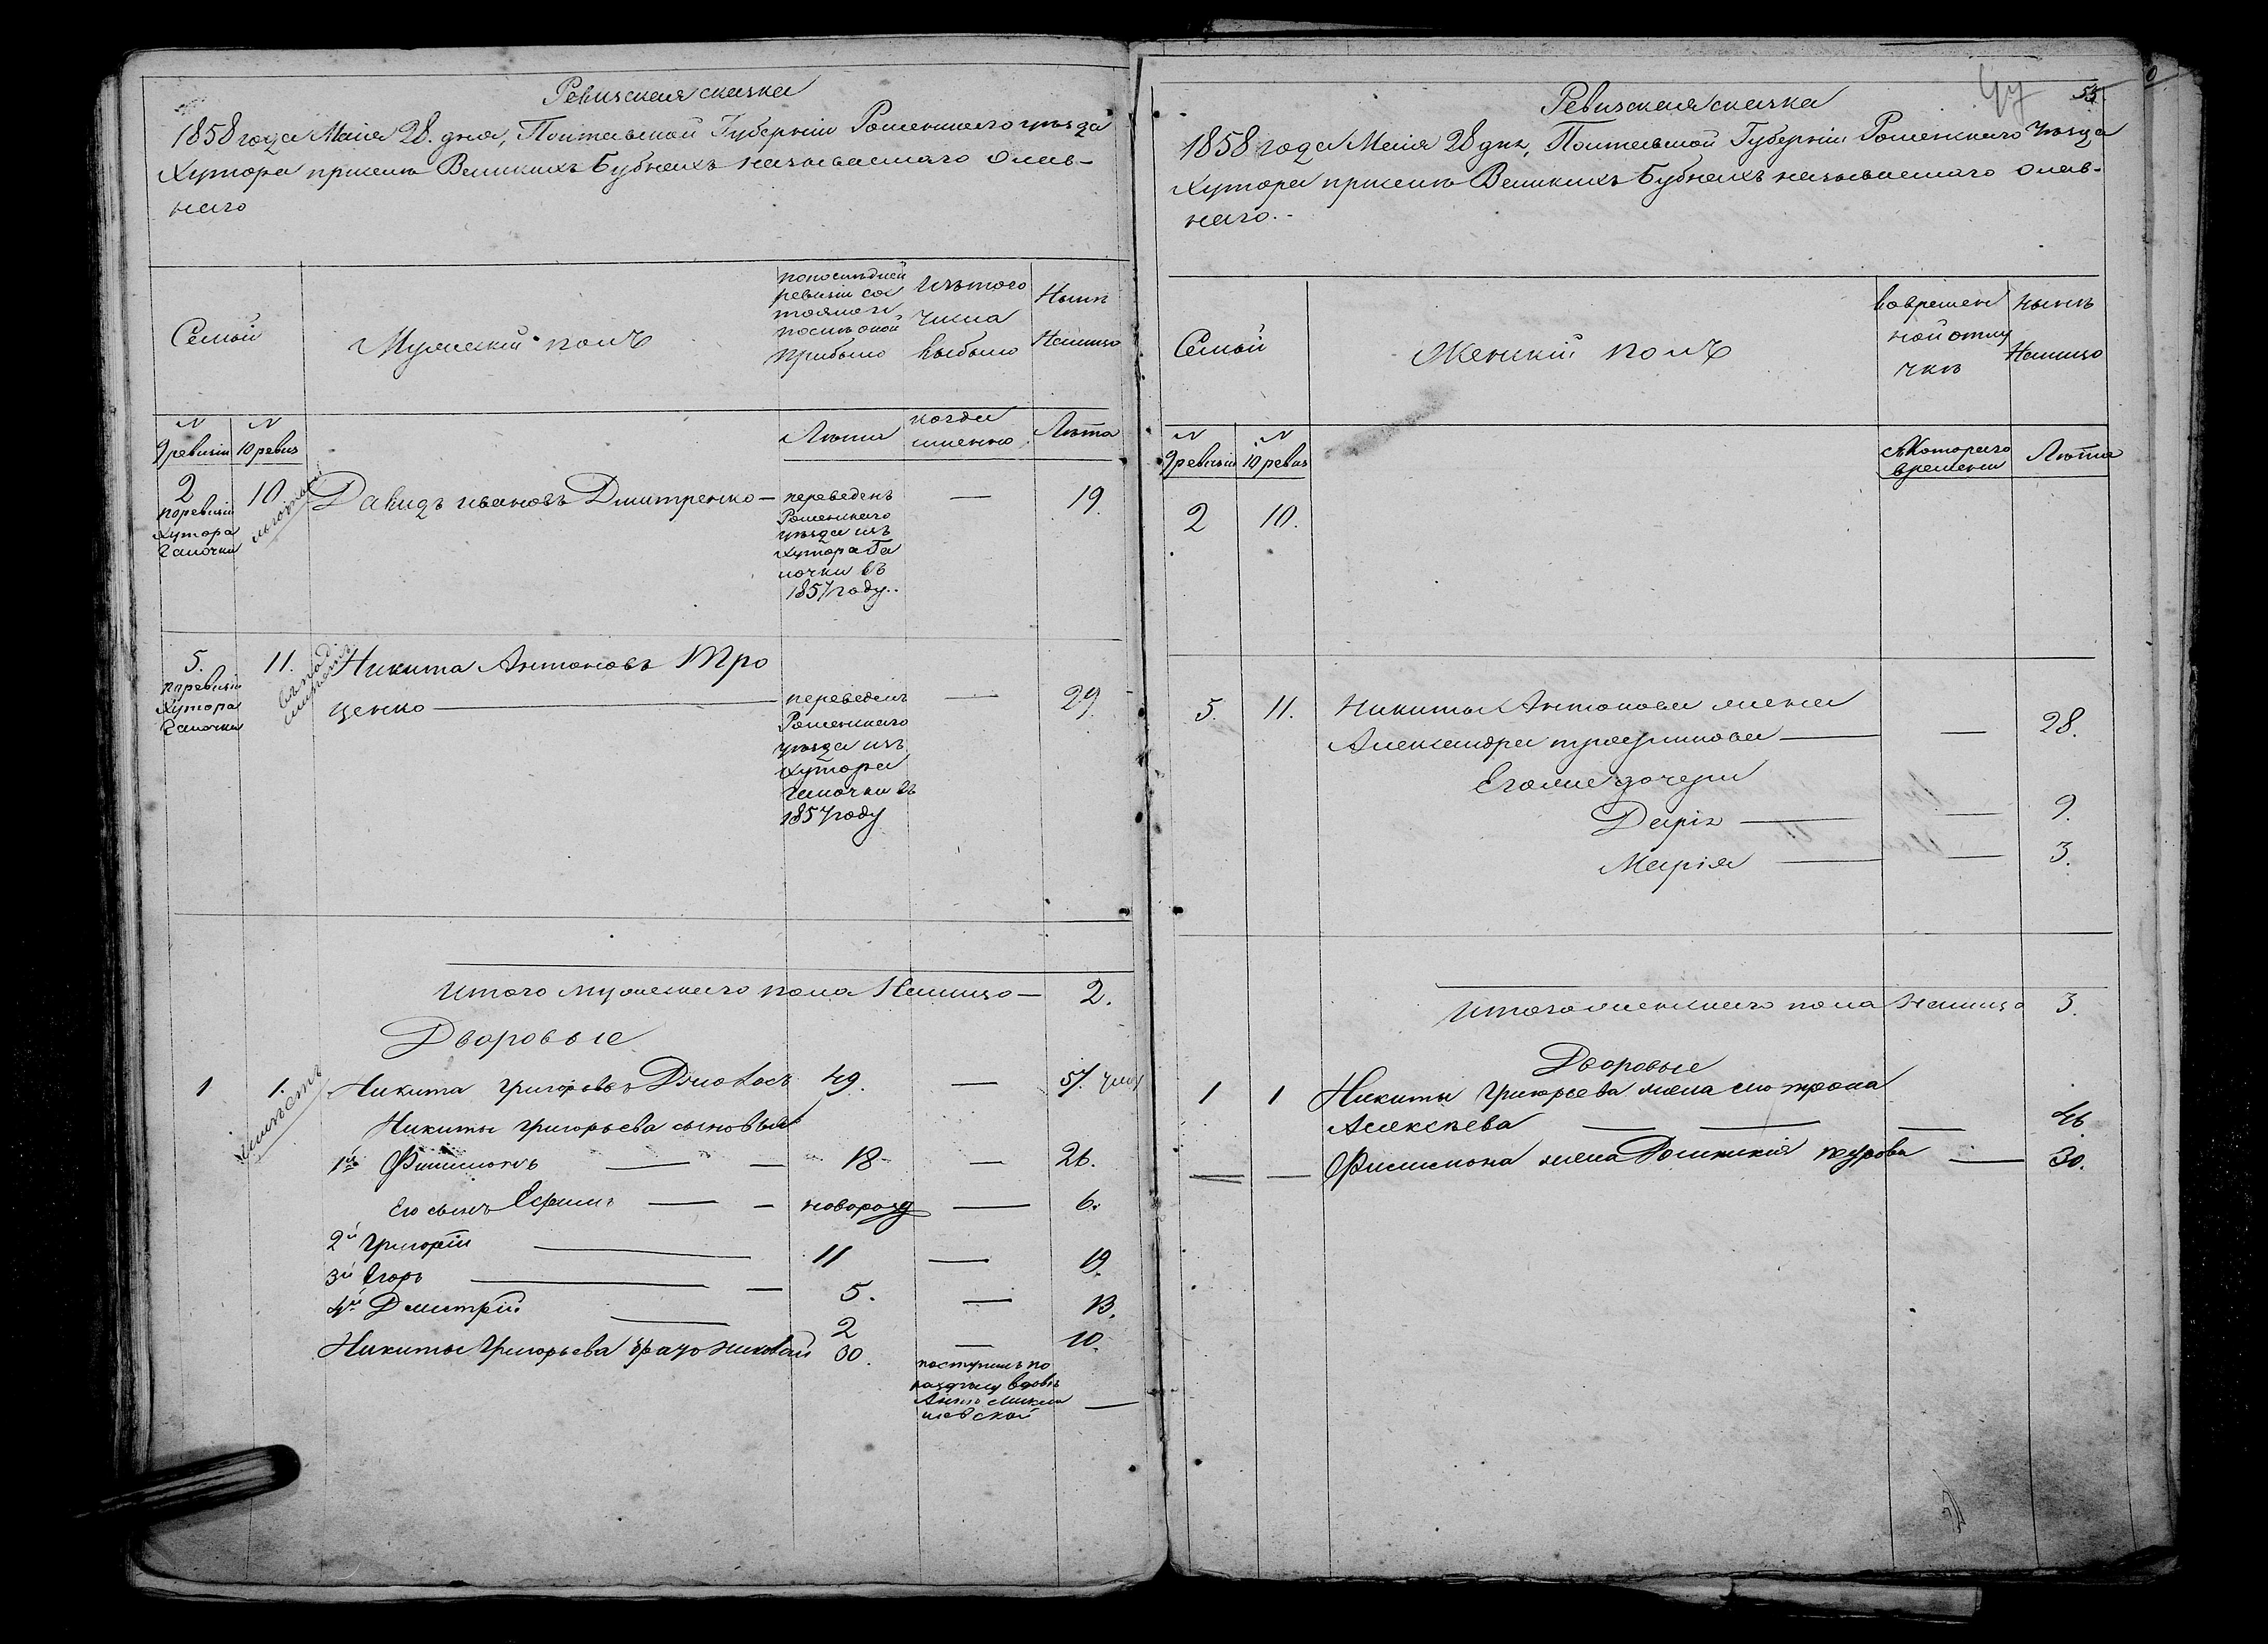 Ревизская сказка
1858 года Маія 28. дня, Полтавской Губерніи Роменскаго уѣзда
Хутора при селѣ Великихъ Бубнахъ называемаго Олав-
наго
Семьи
Мужескій полъ
по последней
ревизіи сос
тояло и
после оной
прибыло
Изъ того
числа
выбыло
Нынѣ
Налицо
N
9 ревизіи
N
10 ревиз
Лѣта
когда
именно
Лѣта
2
по ревизіи
Хутора
Галочки
10.
Давидъ Ивановъ Дмитренко —
переведенъ
Роменскаго
уѣзда изъ
Хутора Га
лочки въ
1857 году..
—
19.
5.
по ревизіи
Хутора
Галочки
11.
Никита Антоновъ Тро
ценко —
переведенъ
Роменскаго
уѣзда изъ
Хутора
Галочки въ
1857 году
—
29.
Итого мужескаго пола Налицо — 2.
Дворовые
1 1. Никита Григорьевъ 49. — 57.
Никиты Григорьева сыновья
1й Филимонъ — — 18 — 26.
Его сынъ Ефимъ — — новорожд — 6.
2й Григорій — 11 — 19.
3й Егоръ — — 5. — 13.
4й Дмитрій — 2 — 10.
Никиты Григорьева братъ Николай 30.
поступилъ по
раздѣлу вдовѣ
Аннѣ Микла
шевской
—
55.
Ревизская сказка
1858 года Маія 28 дня, Полтавской Губерніи Роменскаго уѣзда
Хутора при селѣ Великихъ Бубнахъ называемаго Олав-
наго.-
Семьи
Женскій полъ
во времен
ной отлу
чкѣ
нынѣ
Налицо
N
9 ревизіи
N
10 ревиз
съ котораго
времени
Лѣта
2 10.
5. 11. Никиты Антонова жена
Александра — — 28.
Его же дочери
Дарія — — 9.
Марія — — 3.
Итого женскаго пола налицо 3.
Дворовые
1 1 Никиты Григорьева жена
Алексѣева — — — 46.
— — Филимона жена — 30.